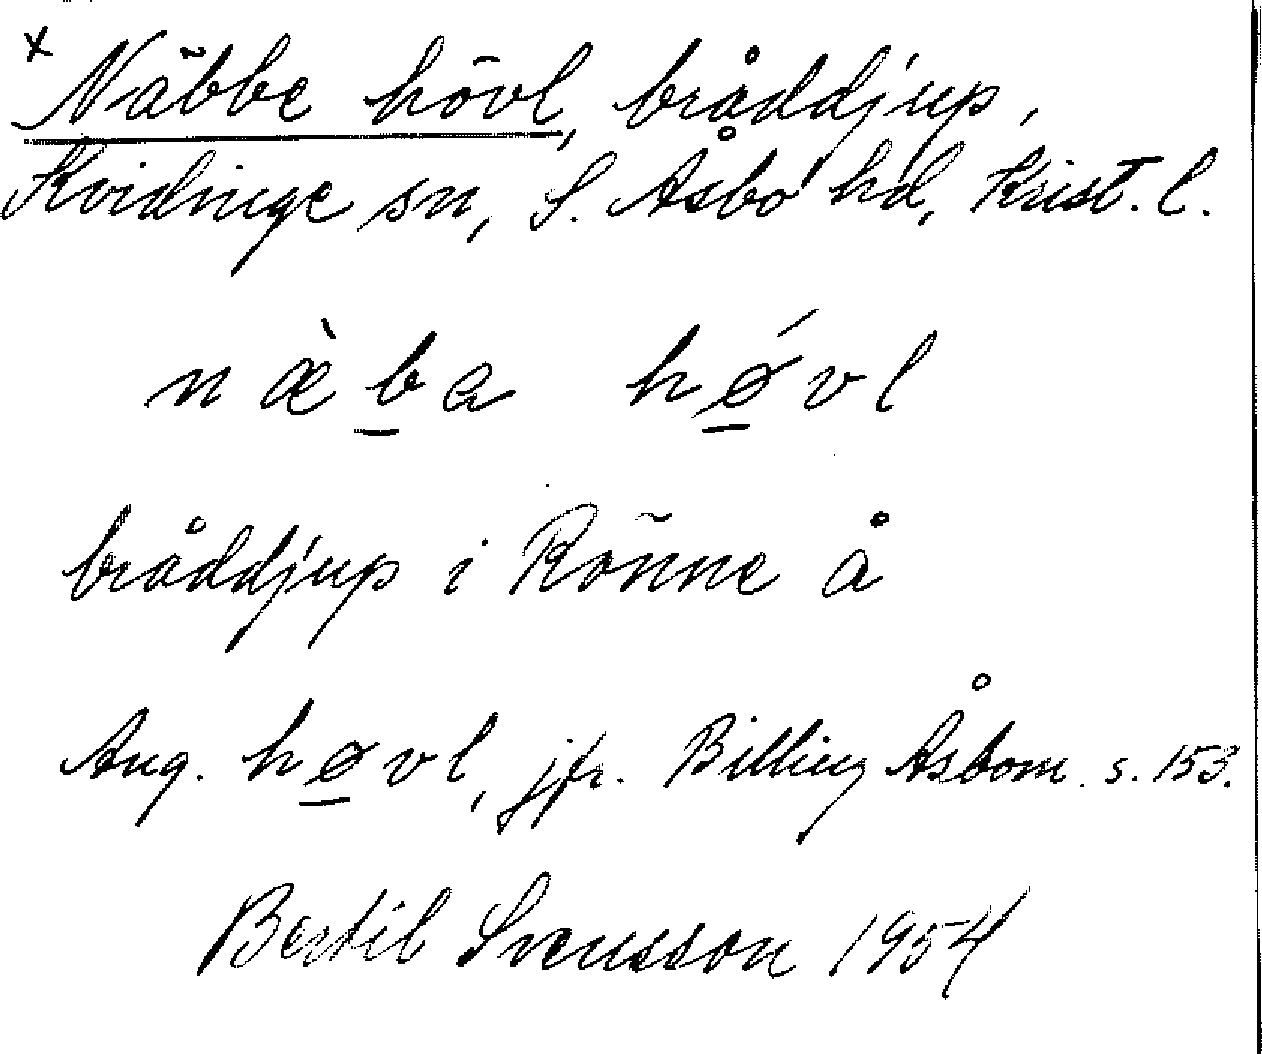 x Näbbe hövl, bråddjup,
Kvidinge sn, S. Åsbo hd, Krist. l.
næ̀b̲a hǿ̲vl
bråddjup i Rönne å
Ang. hø̲vl, jfr. Billing Åsbom. s. 153.
Bertil Svensson 1954